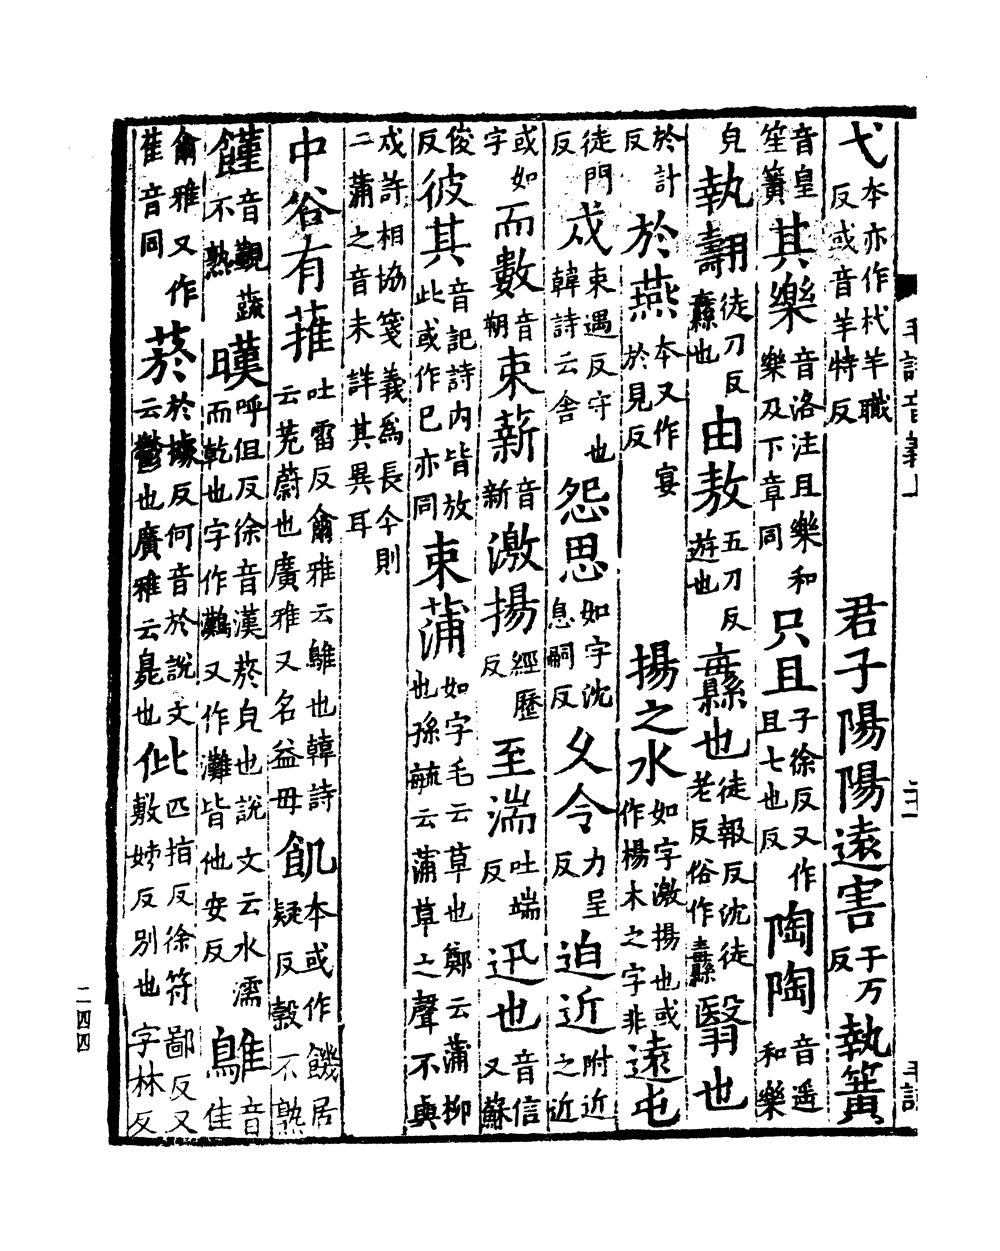 弋本亦作杙羊職反或音羊特反　君子陽陽遠害于万反執簧
音皇笙簧其樂音洛注且樂和樂及下章同只且子徐反又作且七也反陶陶音遥和樂
皃執翿徒刀反纛也由敖五刀反遊也纛也徒報反沈徒老反俗作纛翳也
於計反於燕本又作宴於見反　揚之水如字激揚也或作楊木之字非遠屯
徒門反戍束遇反守也韓詩云舍怨思如字沈息嗣反乆令力呈反迫近附近之近
或如字而數音朔束薪音新激揚經歷反至湍吐端反迅也音信又蘇
俊反彼其音記詩内皆放此或作己亦同束蒲如字毛云草也鄭云蒲柳也孫毓云蒲草之聲不與
戍許相協箋義爲長今則二蒲之音未詳其異耳
中谷有蓷吐雷反爾雅云鵻也韓詩云茺蔚也廣雅又名益母飢本或作饑居疑反穀不熟
饉音覲蔬不熟暵呼但反徐音漢菸皃也說文云水濡而乾也字作鸂又作灘皆他安反鵻音隹
爾雅又作萑音同菸於據反何音於說文云鬱也廣雅云臰也仳匹指反徐符鄙反又敷姊反別也字林父
二四四